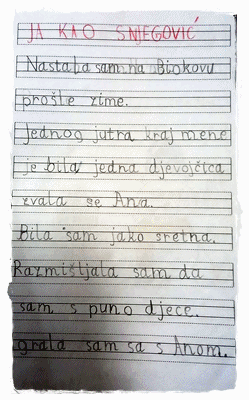 JA KAO SNJEGOVIĆ
Nastala sam na Biokovu
prošle zime.
Jednog jutra kraj mene
je bila jedna djevojčica
zvala se Ana.
Bila sam jako sretna.
Razmišljala sam da
sam s puno djece.
grala sam sa s Anom.